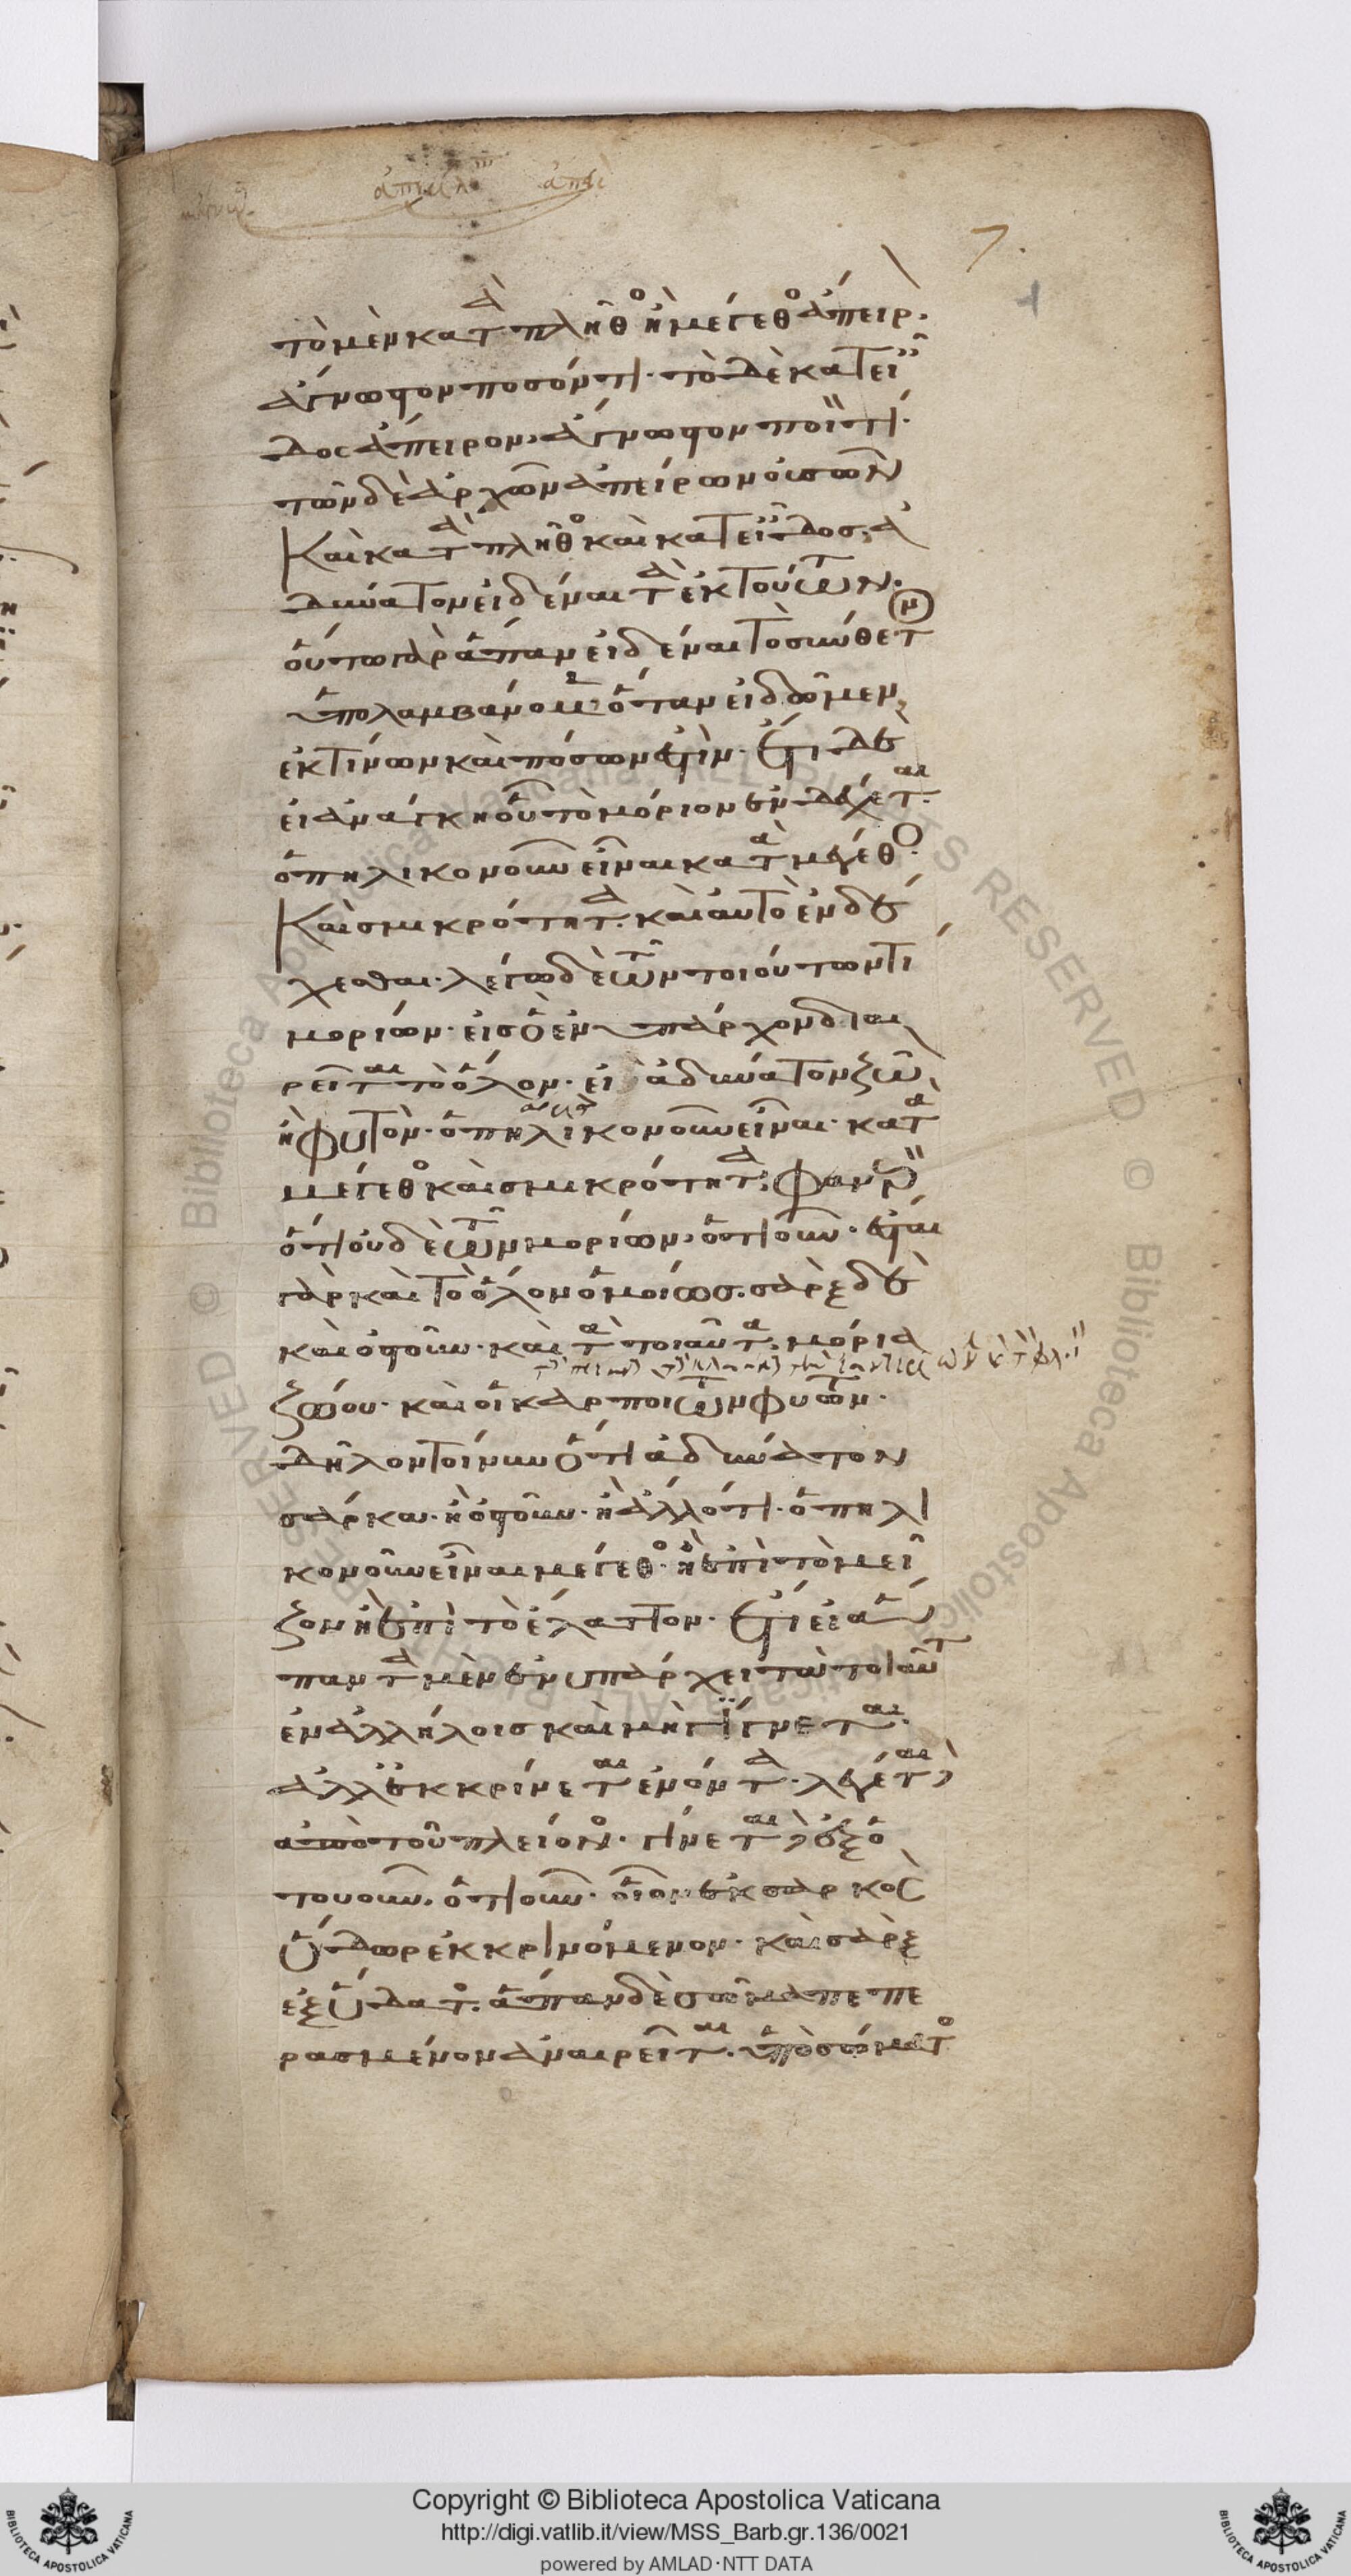 7.
τὸ μὲν κατὰ πλῆθος ἢ μέγεθος ἄπειρ.
ἄγνωστον ποσόν τι. τὸ δὲ κατ εἶ
δος ἄπειρον, ἄγνωστον ποῖόν τι.
τῶν δὲ ἀρχῶν ἀπείρων οὐσῶν
Καὶ κατὰ πλῆθος καὶ κατ εἶδος, ἀ
δύνατον εἰδέναι τὰ ἐκ τούτων.
οὕτω γὰρ ἅπαν εἰδέναι τὸ σύνθετον
ὑπολαμβάνομεν ὅταν εἰδῶμεν,
ἐκ τίνων καὶ πόσων ἐστίν. ἔτι δὲ
εἰ ἀνάγκη οὗ τὸ μόριον ἐνδέχεται.
ὁπηλικονοῦν εἶναι κατὰ μέγεθος.
Καὶ σμικρότητα. καὶ αὐτὸ ἐνδέ
χεσθαι. λέγω δὲ τῶν τοιούτων τι
μορίων. εἰς ὃ ἐνυπάρχον διαι
ρεῖται τὸ ὅλον. εἰ ἀδύνατον ζῶ
ἢ φυτὸν. ὁπηλικονοῦν εἶναι. κατὰ
μέγεθος καὶ σμικρότητα, φανερ
ὅτι οὐδὲ τῶν μορίων, ὁτιοῦν. ἔσται
γὰρ καὶ τὸ ὅλον ὁμοίως. σὰρξ δὲ
καὶ ὀστοῦν. καὶ τὰ τοιαῦτα, μόρια
ζώου. καὶ οἱ καρποὶ τῶν φυτῶν.
δῆλον τοίνυν ὅτι ἀδύνατον
σάρκα. ἢ ὀστοῦν. ἢ ἄλλό τι. ὁπηλι
κονοῦν εἶναι μέγεθος. ἢ ἐπὶ τὸ μεῖ
ζον ἢ ἐπὶ τὸ ἔλαττον. ἔτι εἰ ἅ
παντα μὲν ἐνυπάρχει τὰ τοιαῦτ
ἐν ἀλλήλοις καὶ μὴ γίγνεται.
ἀλλ ἐκκρίνεται ἐνόντα. λέγεται
ἀπὸ τοῦ πλείονος. γίνεται ἐξ ὁ
τουοῦν. ὁτιοῦν. οἷον ἐκ σαρκὸς
ὕδωρ ἐκκρινόμενον. καὶ σὰρξ
ἐξ ὕδατος. ἅπαν δὲ σῶμα πεπε
ρασμένον ἀναιρεῖται. ὑπὸ σώματος
Copyright © Biblioteca Apostolica Vaticana
http://digi.vatlib.it/view/MSS_Barb.gr.136/0021
powered by AMLAD·NTT DATA